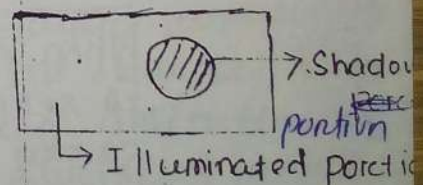 Shadow
portion
Illuminated portio